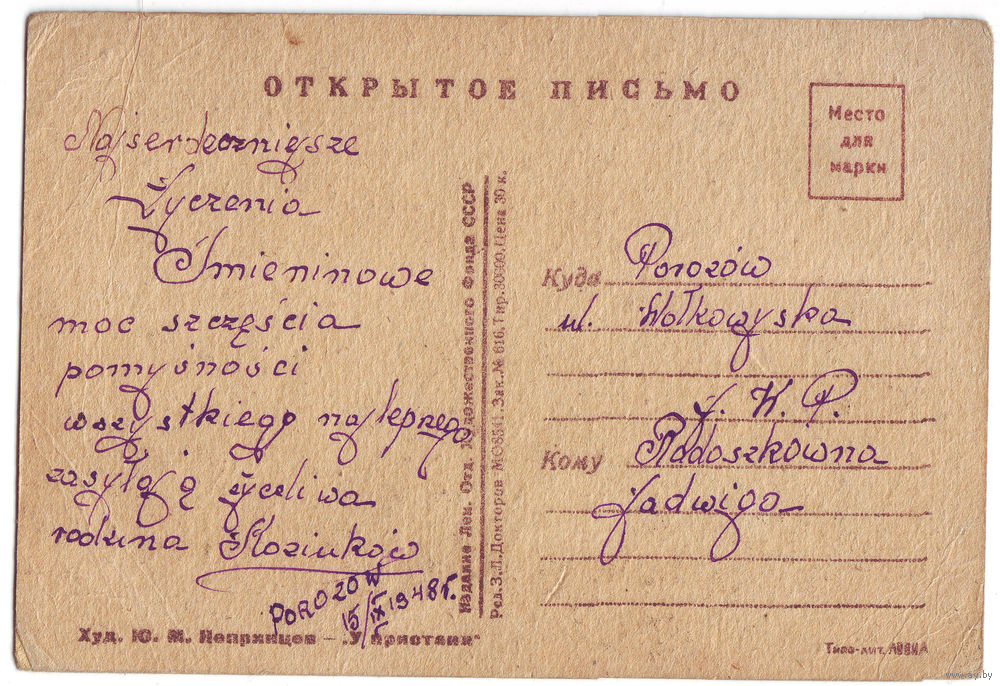 ОТКРЫТОЕ ПИСЬМО
Место
для
марки
Najserdeczniejsze
Życzenia
Imieninowe
moc szczęścia
pomyśności
wszystkiego najlepzego
zasyłają życzliwa
rodzina Koziuków
POROZOW
15/IX 1948 г.
Издание Лен. Отд. Художественного Фонда СССР
Ред. З.Л.Докторов М08541. Зак. № 616. Тир. 30000. Цена 30 к.
Куда Porozów
ul. Wołkowyska
J. W. P.
Кому Radoszkówna
Jadwiga
Худ. Ю. М. Непринцев — „У пристани“
Типо-лит.
www.ay.by